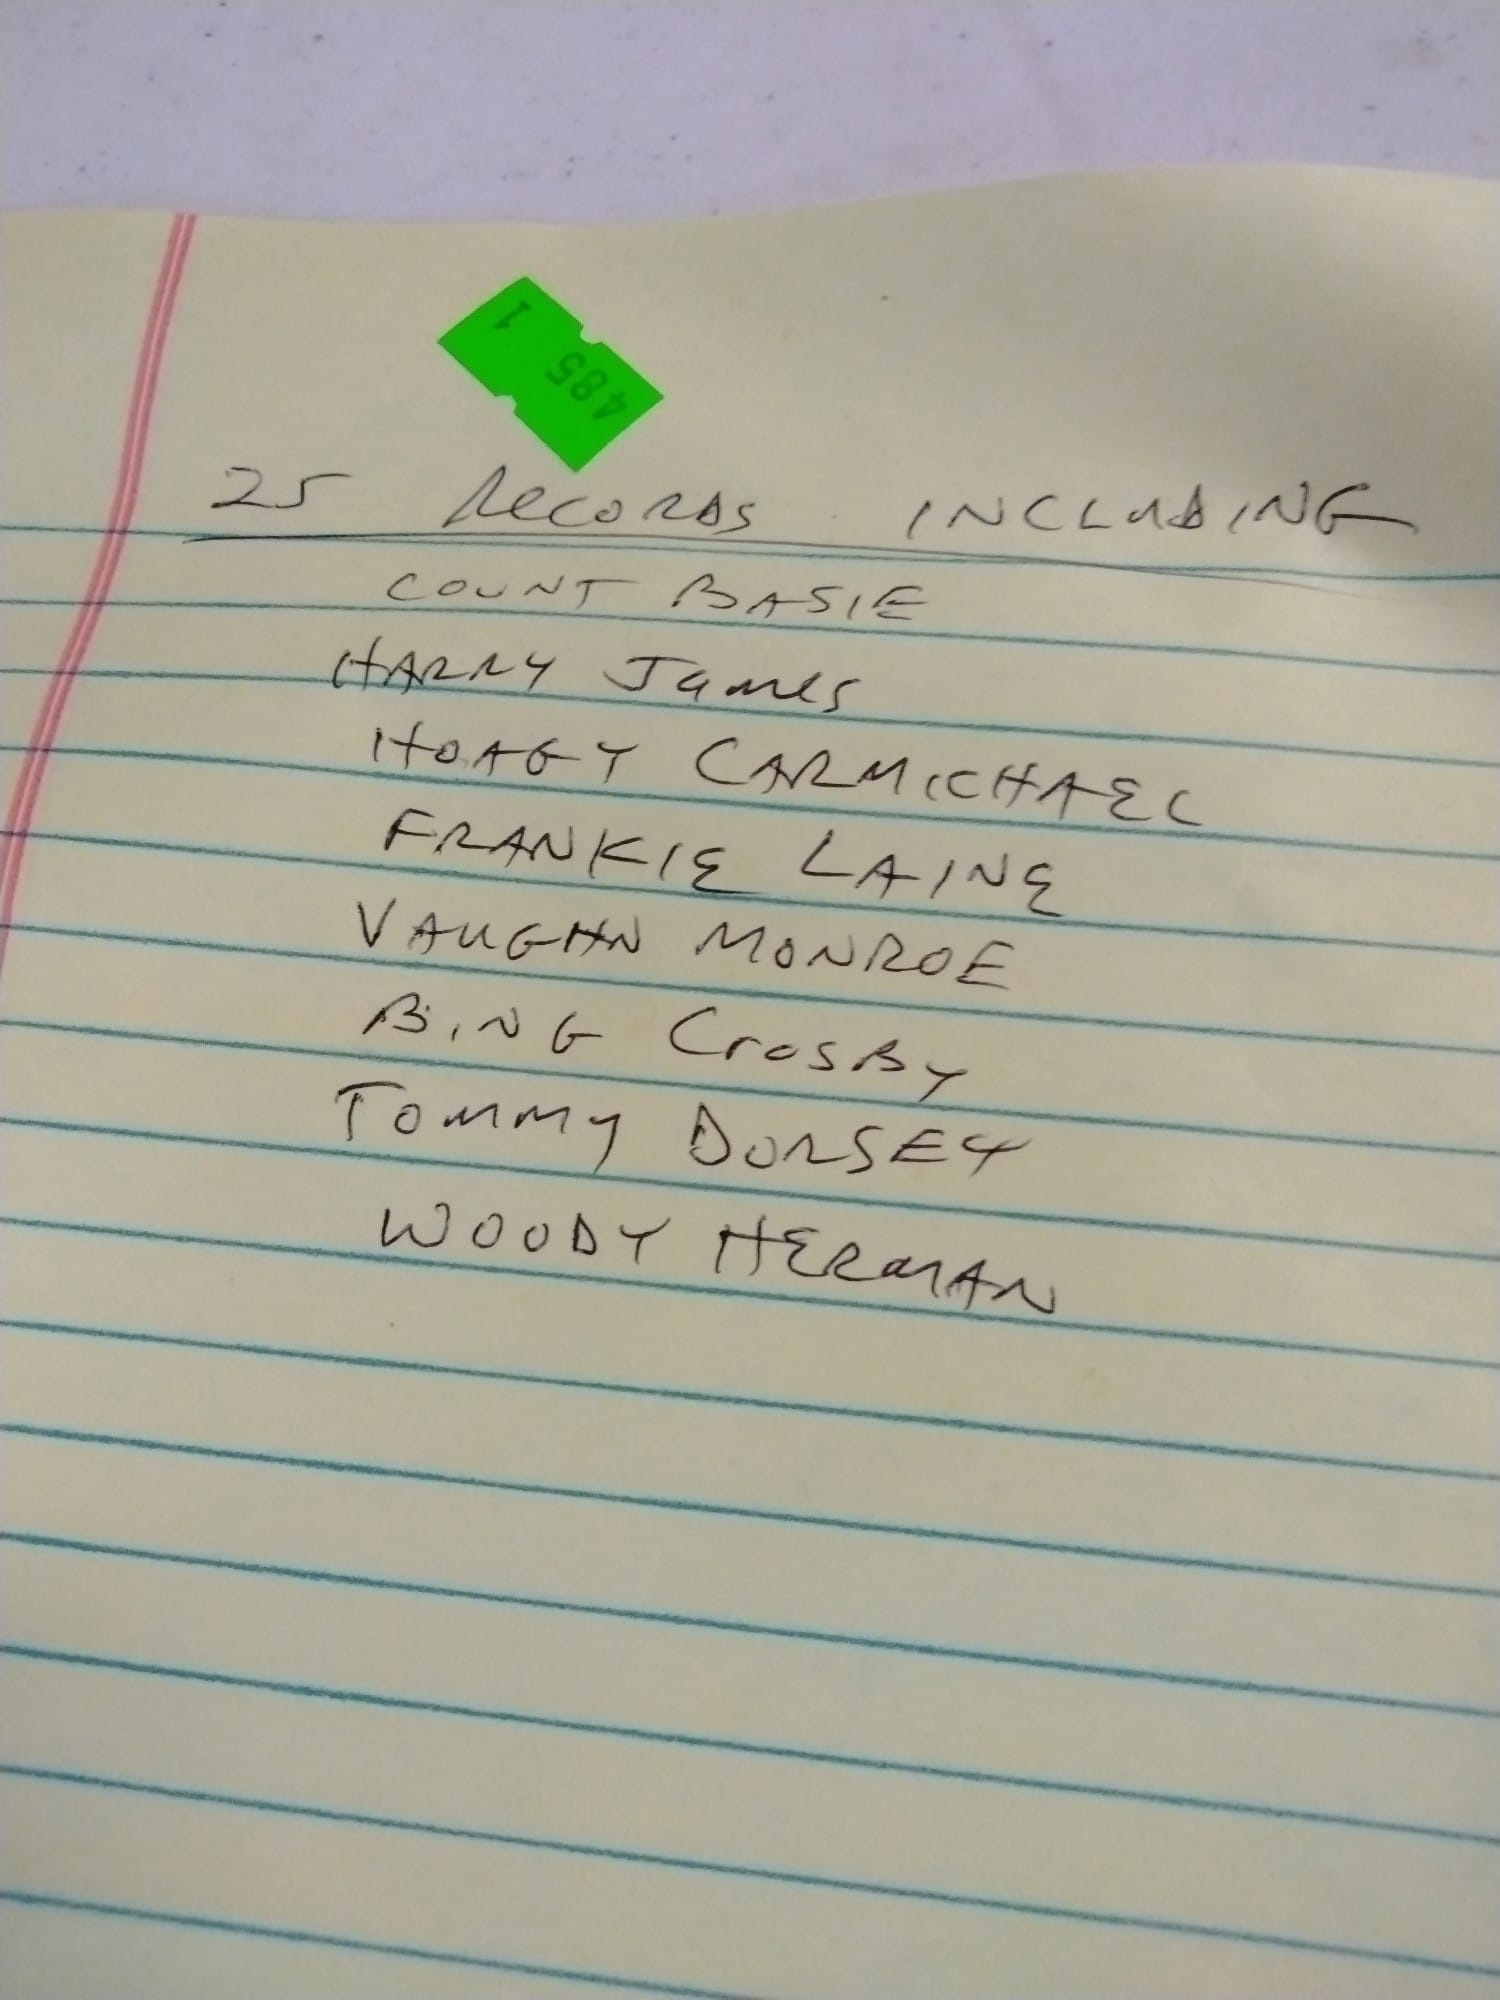 485
1
25 RECORDS INCLUDING
COUNT BASIE
HARRY James
HOAGY CARMICHAEL
FRANKIE LAINE
VAUGHN MONROE
BING CrosBy
Tommy DORSEY
WOODY HERMAN